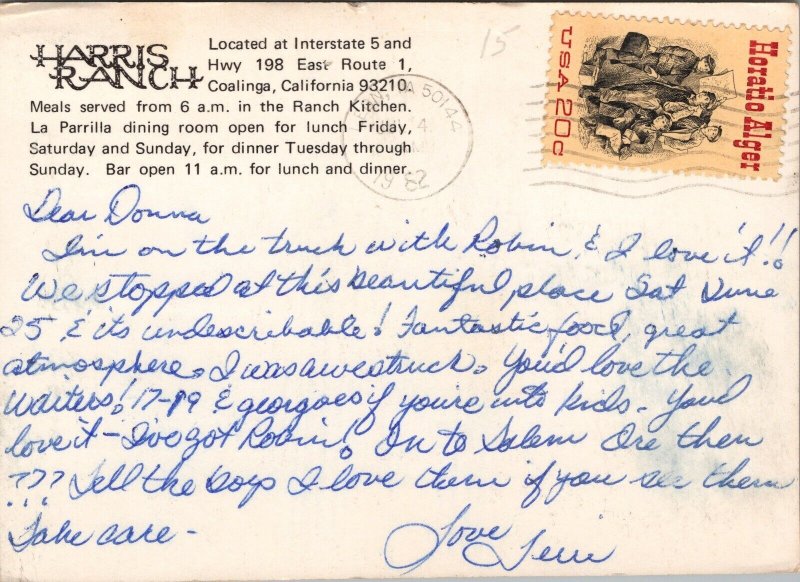 15
HARRIS
RANCH
Located at Interstate 5 and
Hwy 198 East Route 1,
Coalinga, California 93210.
Meals served from 6 a.m. in the Ranch Kitchen.
La Parrilla dining room open for lunch Friday,
Saturday and Sunday, for dinner Tuesday through
Sunday. Bar open 11 a.m. for lunch and dinner.
IA 50144
14
1982
USA 20c
Horatio Alger
Dear Donna
I'm on the truck with Robin, & I love it!!
We stopped at this beautiful place Sat June
25, & its undescribable! Fantastic food, great
atmosphere. I was awestruck. You'd love the
Waiters! 17-19 & georgoes if you're into kids - You'd
love it - I've got Robin! On to Salem Ore then
??? Tell the boys I love them if you see them
Take care -
Love
Terri